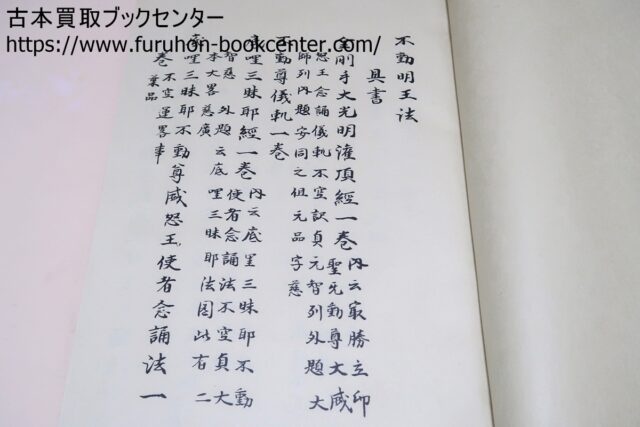 古本買取ブックセンター
https://www.furuhon-bookcenter.com/
不動明王法
具書
金剛手大光明灌頂經一巻 内云最勝立印
聖无動尊大威
怒王念誦儀軌不空訳貞元智列外題大
師列内題安同之但元品字慈
不動尊儀軌一巻
底哩三昧耶經一巻 内云底哩三昧耶不動
使者念誦法不空貞大
智慈 外題云底哩三昧耶法因此有二
本大畧慈廣
底哩三昧耶不動尊威怒王使者念誦法一
巻 不空運畧事
葉品